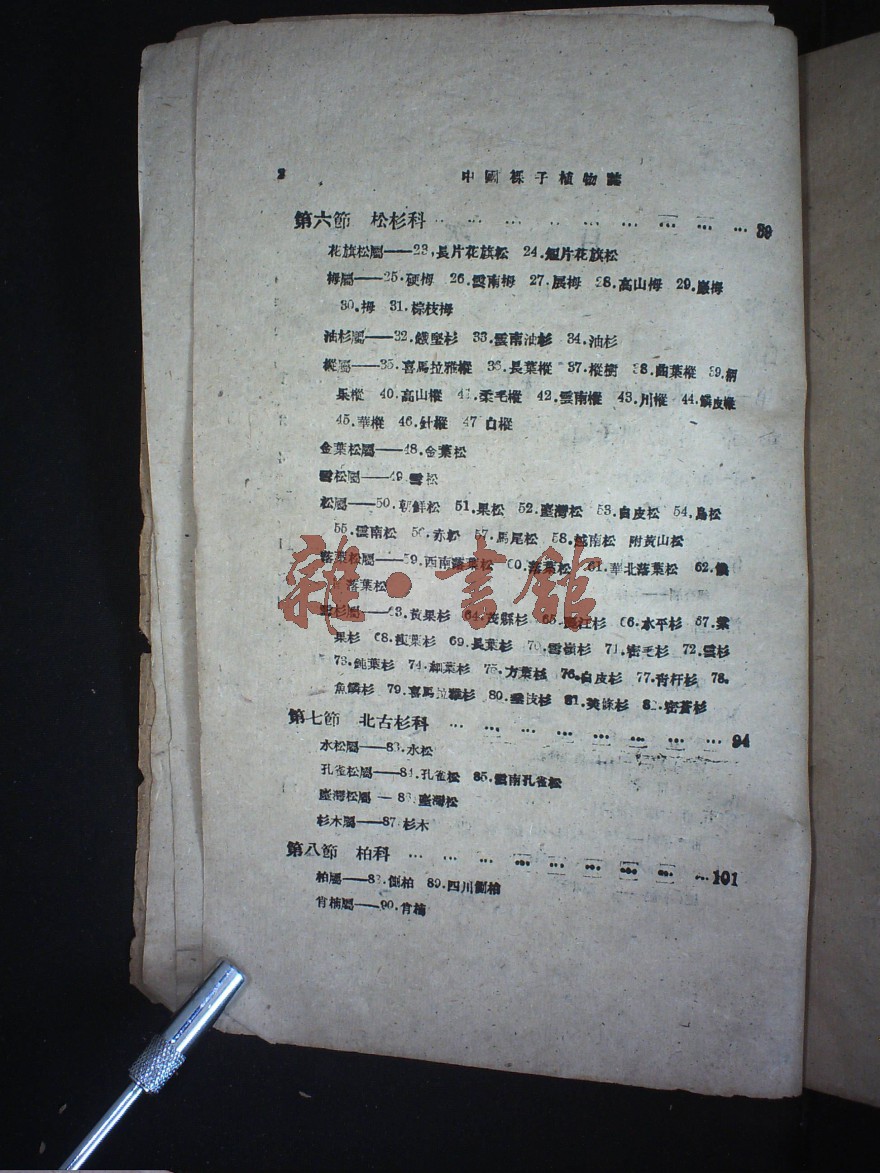 2 中國裸子植物誌
第六節 松杉科 … … … … … … … … … 39
花旗松屬——23.長片花旗松 24.短片花旗松
栂屬——25.硬栂 26.雲南栂 27.展栂 28.高山栂 29.巖栂
30.栂 31.棕枝栂
油杉屬——32.鐵堅杉 33.雲南油杉 34.油杉
樅屬——35.喜馬拉雅樅 36.長葉樅 37.樅樹 38.曲葉樅 39.
果樅 40.高山樅 41.柔毛樅 42.雲南樅 43.川樅 44.鱗皮樅
45.華樅 46.針樅 47.白樅
金葉松屬——48.金葉松
雪松屬——49.雪松
松屬——50.朝鮮松 51.果松 52.臺灣松 53.白皮松 54.島松
55.雲南松 56.赤松 57.馬尾松 58.越南松 附黃山松
落葉松屬——59.西南落葉松 60.落葉松 61.華北落葉松 62.
落葉松
雲杉屬——63.黃果杉 64.茂縣杉 65.麗江杉 66.水平杉 67.紫
果杉 68.短葉杉 69.長葉杉 70.雪嶺杉 71.密毛杉 72.雲杉
73.鈍葉杉 74.細葉杉 75.方葉杉 76.白皮杉 77.青杆杉 78.
魚鱗杉 79.喜馬拉雅杉 80.垂枝杉 81.美味杉 82.密蒼杉
第七節 北古杉科 … … … … … … … … 94
水松屬——83.水松
孔雀松屬——84.孔雀松 85.雲南孔雀松
臺灣松屬——86.臺灣松
杉木屬——87.杉木
第八節 柏科 … … … … … … … … …101
柏屬——88.側柏 89.四川側柏
肯楠屬——90.肯楠
雜·書館